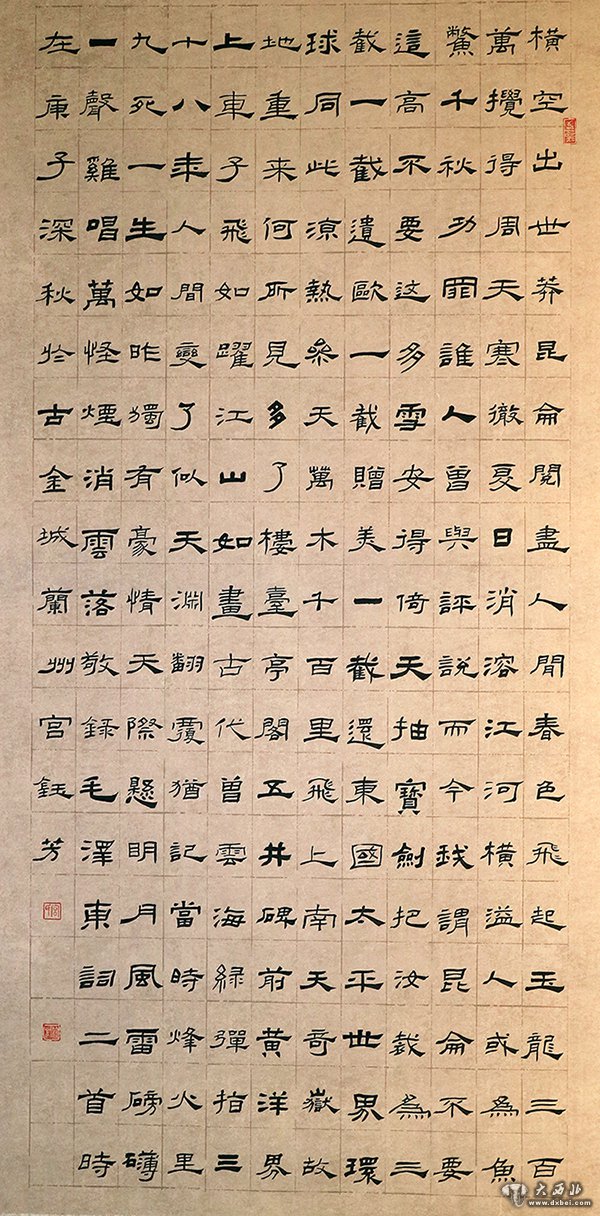 橫空出世莽昆侖閱盡人間春色飛起玉龍三百
萬攪得周天寒徹夏日消溶江河橫溢人或為魚
鱉千秋功罪誰人曾與評說而今我謂昆侖不要
這高不要这多雪安得倚天抽寶劍把汝裁為三
截一截遺歐一截贈美一截還東國太平世界環
球同此涼熱參天萬木千百里飛上南天奇嶽故
地重来何所見多了樓臺亭閣五井碑前黃洋界
上車子飛如躍江山如畫古代曾雲海綠彈指三
十八年人間變了似天淵翻覆猶記當時烽火里
九死一生如昨獨有豪情天際懸明月風雷磅礴
一聲雞唱萬怪煙消雲落敬録毛澤東詞二首時
在庚子深秋於古金城蘭州宫鈺芳
大西北
www.dxbei.com